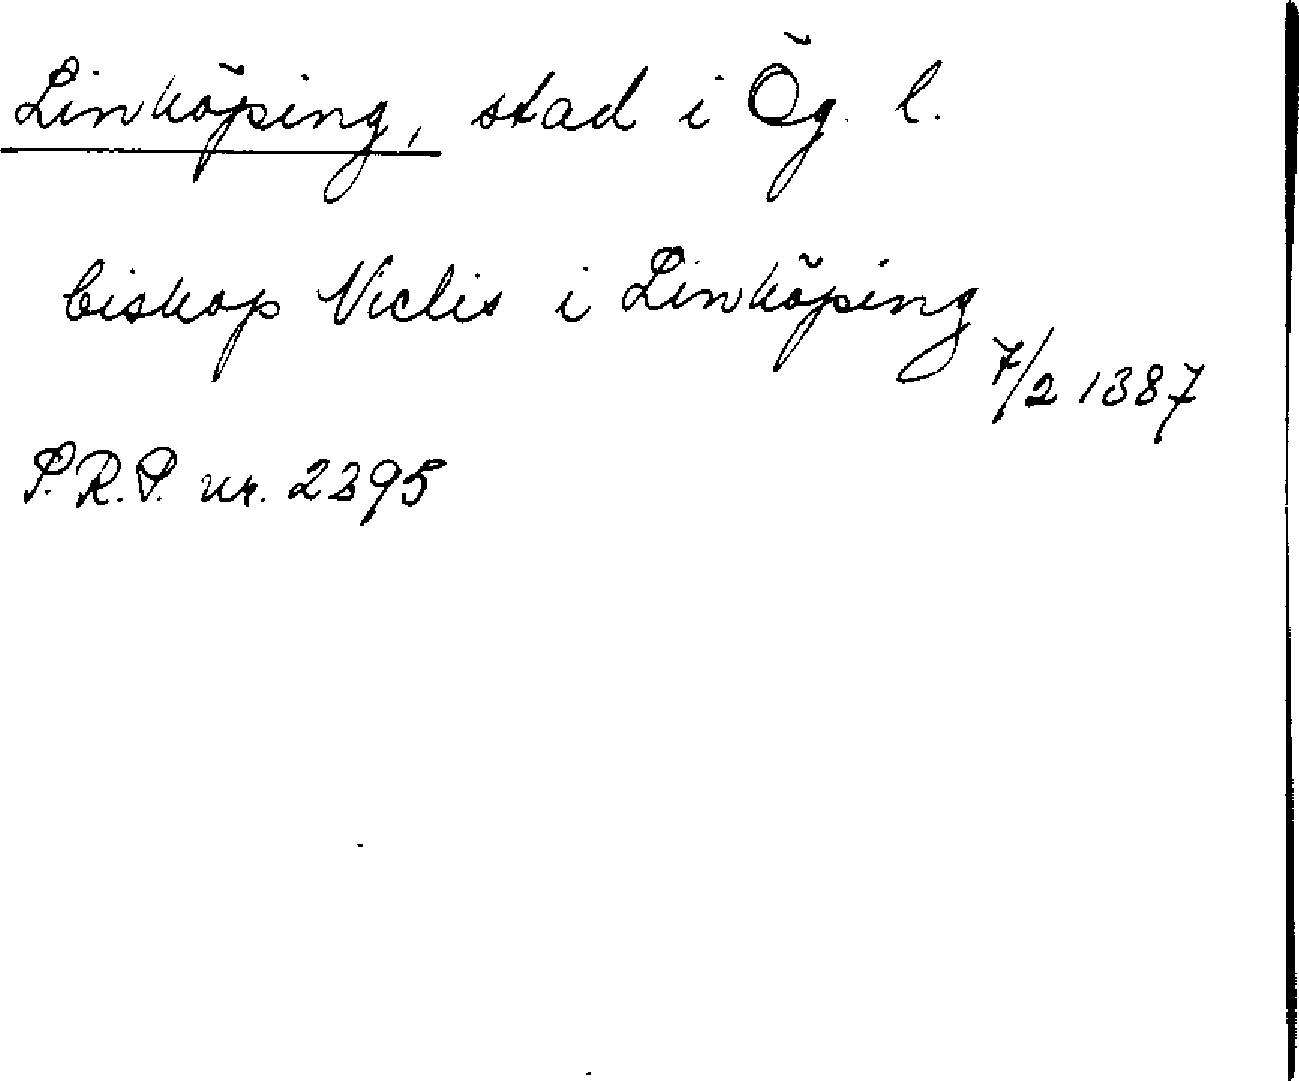 Linköping, stad i Ög. l.
biskop Niclis i Linköping
7/2 1387
P.R.P. nr. 2395